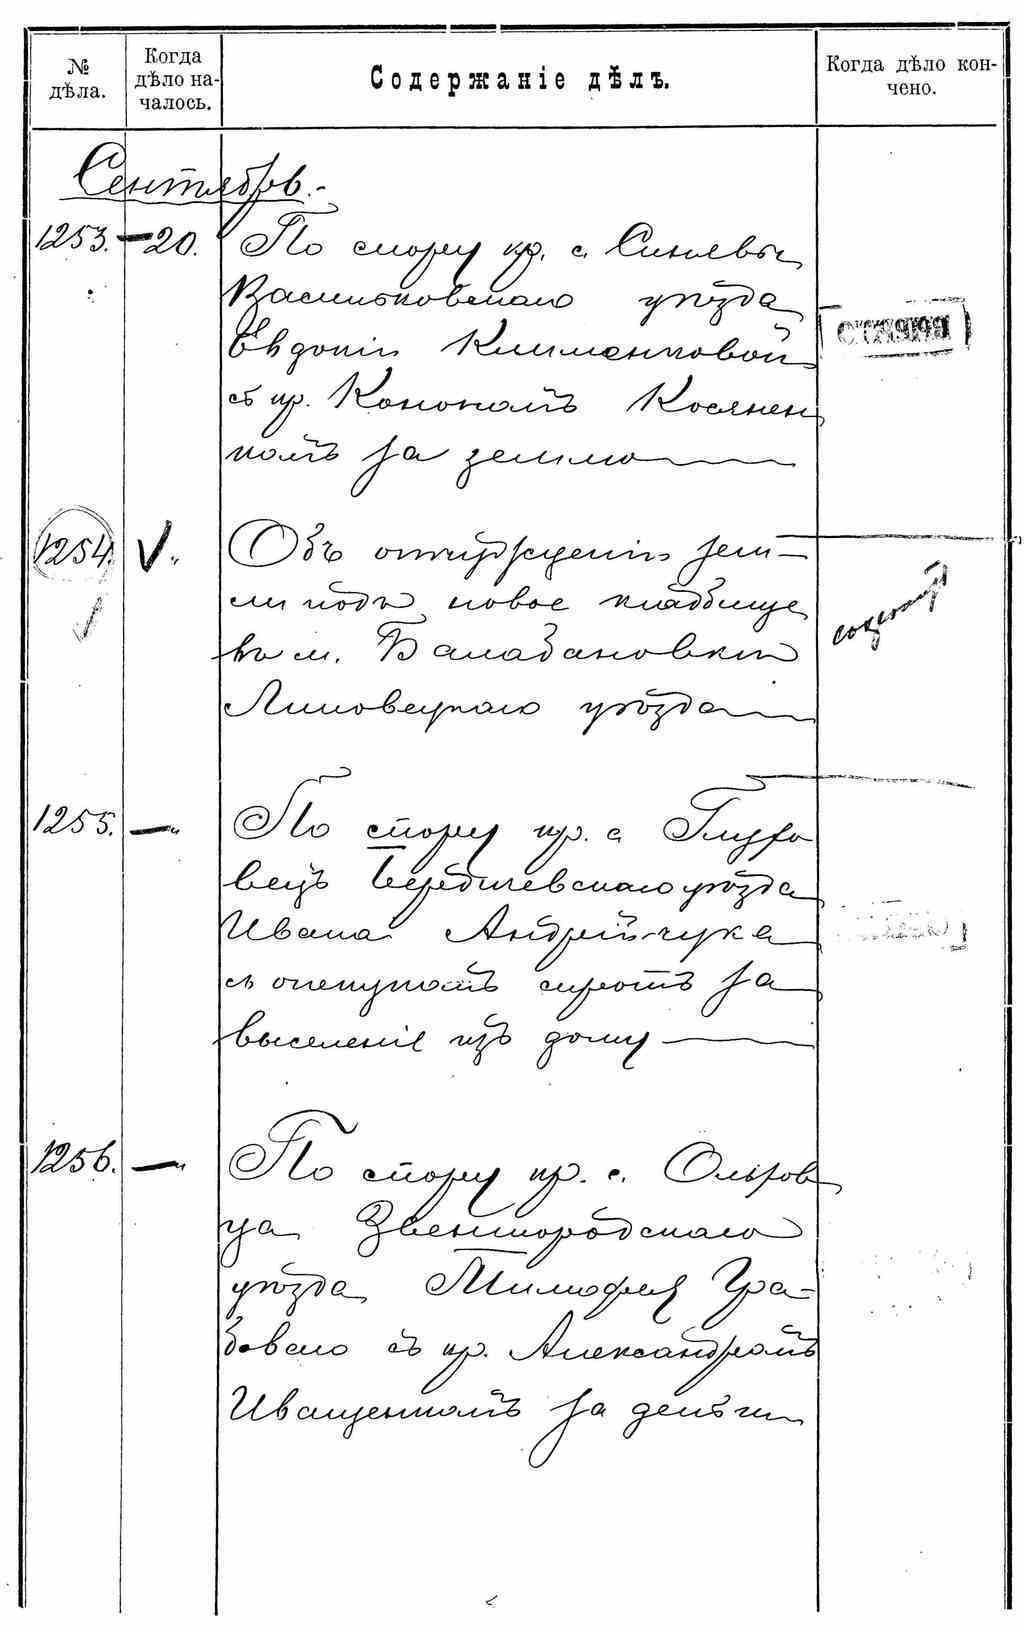 № дѣла.
Когда дѣло началось.
Содержаніе дѣлъ.
Когда дѣло кончено.
Сентябрь.
1253. — 20. По спору кр. с. Синявы
Васильковскаго уѣзда
Евдокіи Клименковой
съ кр. Конономъ Косянен
комъ за землю
1254. V „ Объ отчужденіи зем-
ли подъ новое кладбище
въ м. Балабановкѣ
Липовецкаго уѣзда
1255. — „ По спору кр. с. Глухо
вецъ Бердичевскаго уѣзда
Ивана Андрійчука
съ опекуномъ сиротъ за
выселеніе изъ дому
1256. — „ По спору кр. с. Ольхов
ца Звенигородскаго
уѣзда Тимофея Гра-
боваго съ кр. Александромъ
Иващенкомъ за деньги